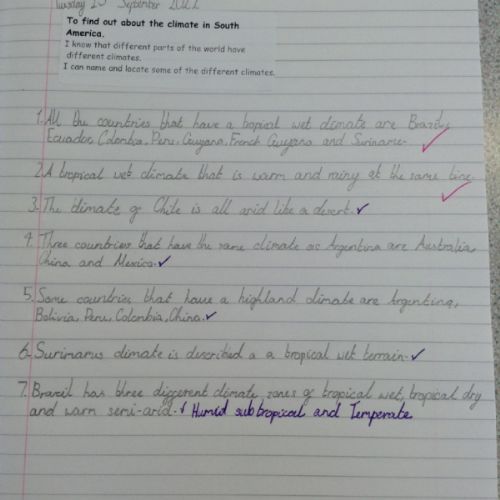 Tuesday 13 September 2022
To find out about the climate in South
America.
I know that different parts of the world have
different climates.
I can name and locate some of the different climates.
1. All the countries that have a tropical wet climate are Brazil,
Ecuador, Colombia, Peru, Guyana, French Guyana and Suriname.
2. A tropical wet climate that is warm and rainy at the same time.
3. The climate of Chile is all arid like a desert.
4. Three countries that have the same climate as Argentina are Australia,
China and Mexico.
5. Some countries that have a highland climate are Argentina,
Bolivia, Peru, Colombia, China.
6. Surinams climate is described a a tropical wet terrain.
7. Brazil has three different climate zones of tropical wet, tropical dry
and warm semi-arid. Humid subtropical and Temperate